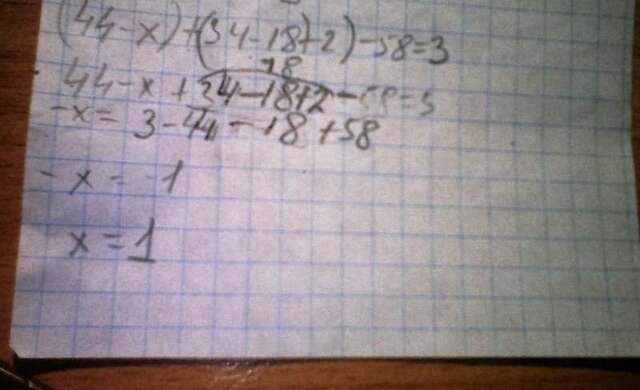 (44-x)+(34-18)+2)-58=3
18
44-x+34-18+2-58=3
-x=3-44-18+58
-x=-1
x=1